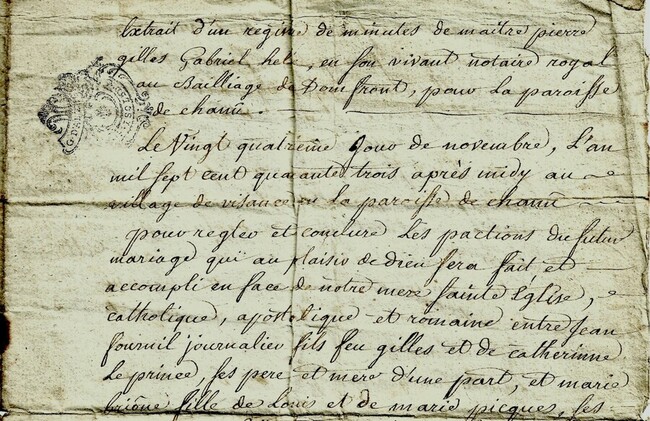 Extrait d'un registre de minutes de maître pierre
gilles Gabriel helé, en son vivant notaire royal
au Bailliage de Domfront, pour la paroisse
de chanû.
Le Vingt quatrieme Jour de novembre, L'an
mil sept cent quarante trois après midy au
village de visance en la paroisse de chanû
pour regler et conclure Les pactions du futur
mariage qui au plaisir de dieu sera fait et
accompli en face de notre mere Sainte Eglise,
catholique, apostolique et romaine entre Jean
fournil journalier fils feu gilles et de catherinne
Le prince, ses pere et mere d'une part, et marie
briône fille de Louis et de marie picques, ses